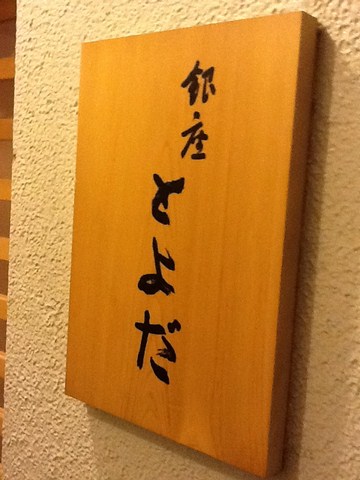 銀座とよだ